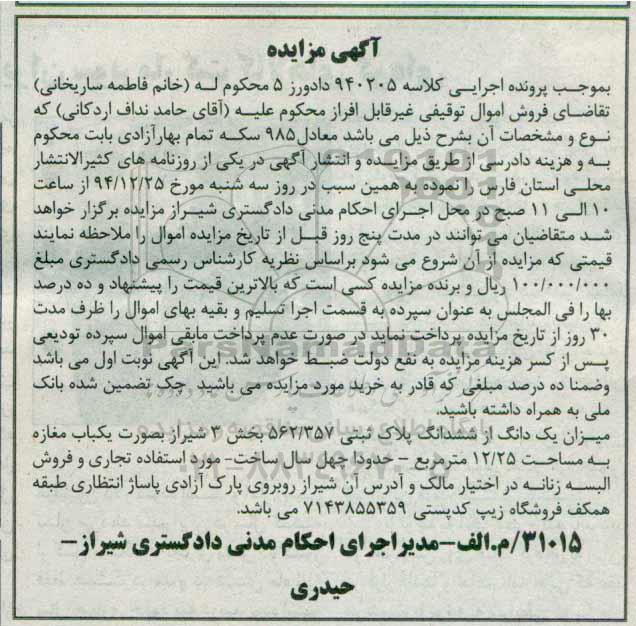 آگهی مزایده
بموجب پرونده اجرایی کلاسه ۹۴۰۲۰۵ دادورز ۵ محکوم له (خانم فاطمه ساریخانی)
تقاضای فروش اموال توقیفی غیرقابل افراز محکوم علیه (آقای حامد نداف اردکانی) که
نوع و مشخصات آن بشرح ذیل می باشد معادل۹۸۵ سکه تمام بهارآزادی بابت محکوم
به و هزینه دادرسی از طریق مزایده و انتشار آگهی در یکی از روزنامه های کثیرالانتشار
محلی استان فارس را نموده به همین سبب در روز سه شنبه مورخ ۹۴/۱۲/۲۵ از ساعت
۱۰ الی ۱۱ صبح در محل اجرای احکام مدنی دادگستری شیراز مزایده برگزار خواهد
شد متقاضیان می توانند در مدت پنج روز قبل از تاریخ مزایده اموال را ملاحظه نمایند
قیمتی که مزایده از آن شروع می شود براساس نظریه کارشناس رسمی دادگستری مبلغ
۱۰۰/۰۰۰/۰۰۰ ریال و برنده مزایده کسی است که بالاترین قیمت را پیشنهاد و ده درصد
بها را فی المجلس به عنوان سپرده به قسمت اجرا تسلیم و بقیه بهای اموال را ظرف مدت
۳۰ روز از تاریخ مزایده پرداخت نماید در صورت عدم پرداخت مابقی اموال سپرده تودیعی
پس از کسر هزینه مزایده به نفع دولت ضبط خواهد شد. این آگهی نوبت اول می باشد
وضمنا ده درصد مبلغی که قادر به خرید مورد مزایده می باشید چک تضمین شده بانک
ملی به همراه داشته باشید.
میزان یک دانگ از ششدانگ پلاک ثبتی ۵۶۲/۳۵۷ بخش ۳ شیراز بصورت یکباب مغازه
به مساحت ۱۲/۲۵ مترمربع - حدودا چهل سال ساخت- مورد استفاده تجاری و فروش
البسه زنانه در اختیار مالک و آدرس آن شیراز روبروی پارک آزادی پاساژ انتظاری طبقه
همکف فروشگاه زیپ کدپستی ۷۱۴۳۸۵۵۳۵۹ می باشد.
۳۱۰۱۵/م.الف-مدیراجرای احکام مدنی دادگستری شیراز-
حیدری